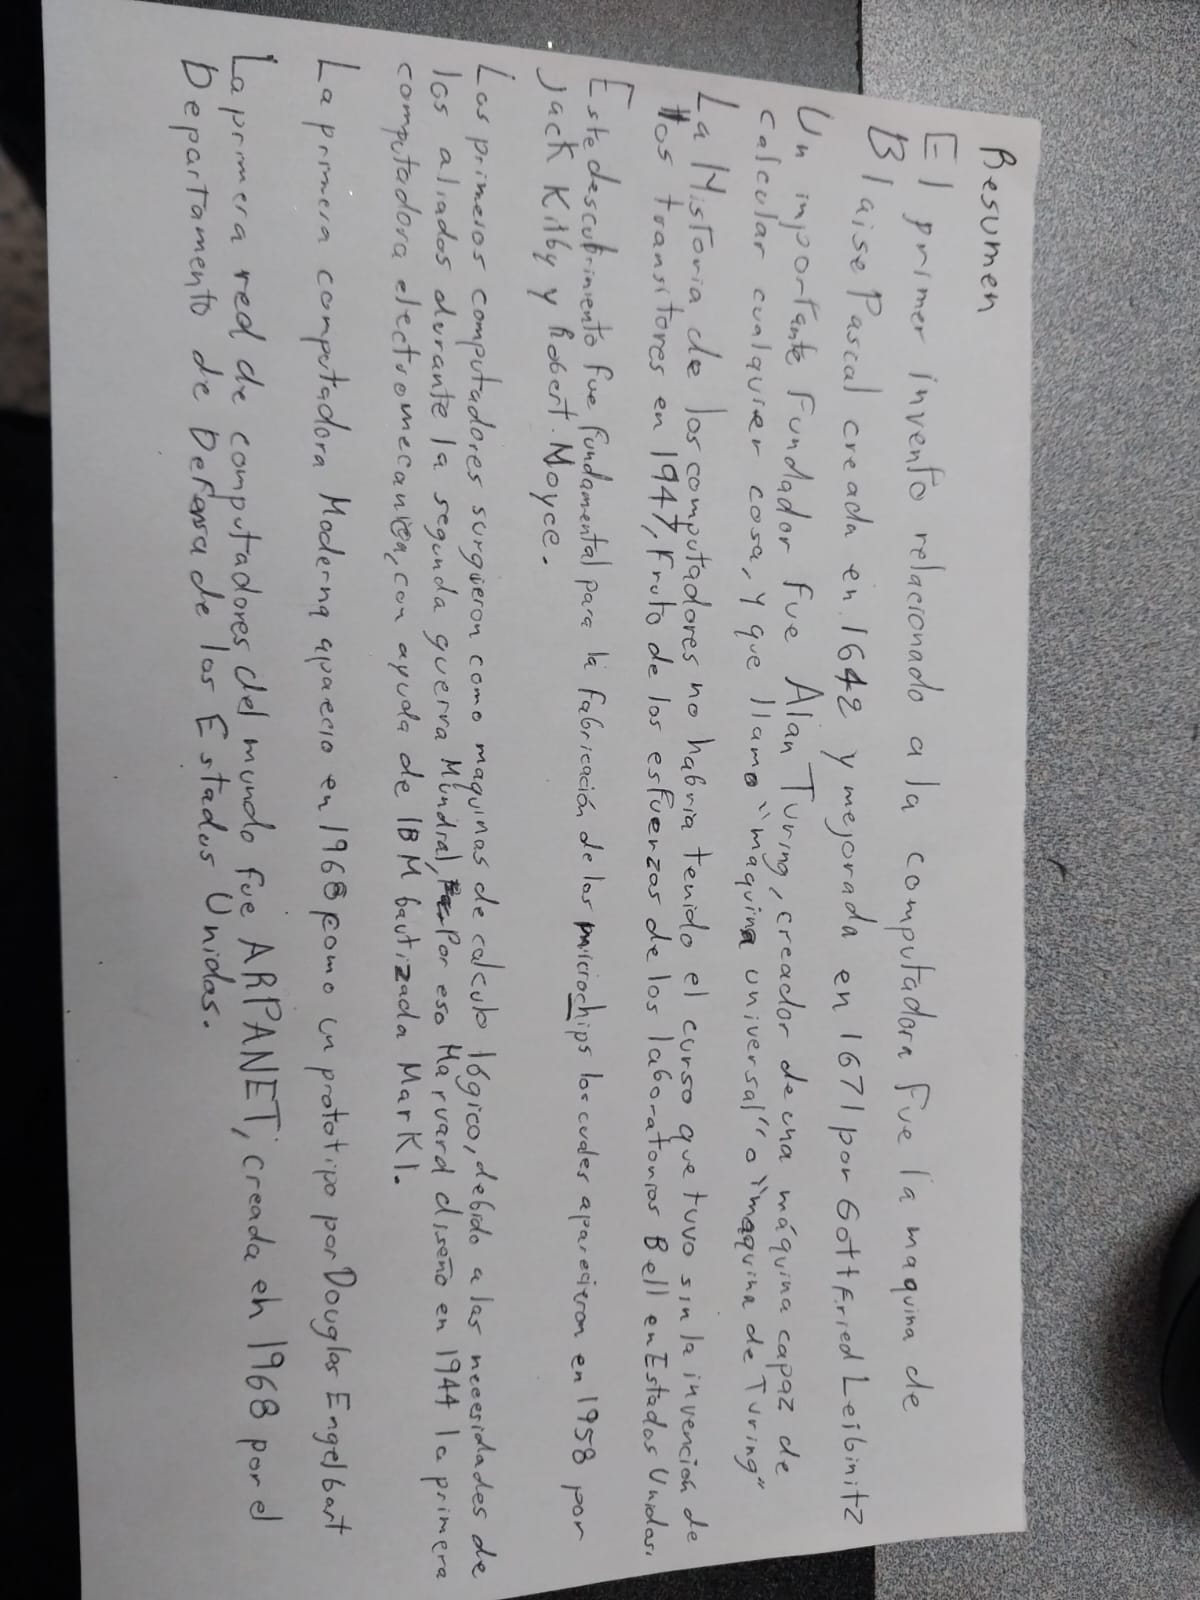 Resumen
El primer invento relacionado a la computadora fue la maquina de
Blaise Pascal creada en 1642 y mejorada en 1671 por Gottfried Leibinitz
Un importante Fundador fue Alan Turing, creador de una máquina capaz de
calcular cualquier cosa, y que llamo "maquina universal" o "maquina de Turing"
La Historia de los computadores no habria tenido el curso que tuvo sin la invención de
los transitores en 1947, Fruto de los esfuerzos de los laboratorios Bell en Estados Unidos.
Este descubrimiento fue fundamental para la fabricación de los microchips los cuales aparecieron en 1958 por
Jack Kilby y Robert Noyce.
Los primeros computadores surgieron como maquinas de calculo lógico, debido a las necesidades de
los aliados durante la segunda guerra Mundial, Por eso Harvard diseño en 1944 la primera
computadora electromecanica, con ayuda de IBM bautizada Mark I.
La primera computadora Moderna aparecio en 1968 como un prototipo por Douglas Engelbart
La primera red de computadores del mundo fue ARPANET, creada en 1968 por el
Departamento de Defensa de los Estados Unidos.